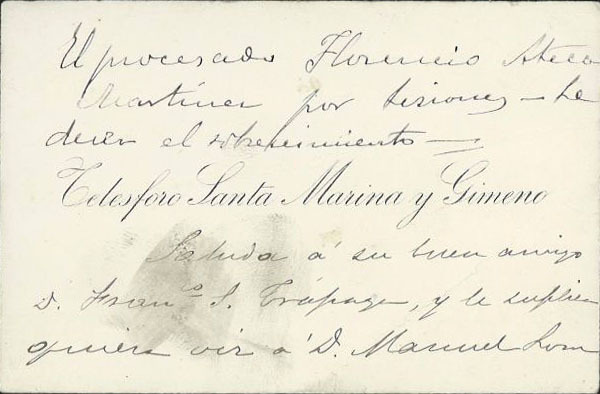 El procesado Florencio Ateca
Martínez por lesiones — se
desea el sobreseimiento —
Telesforo Santa Marina y Gimeno
Saluda á su buen amigo
D. Fran.co S. Trápaga, y le suplica
quiera oir á D. Manuel